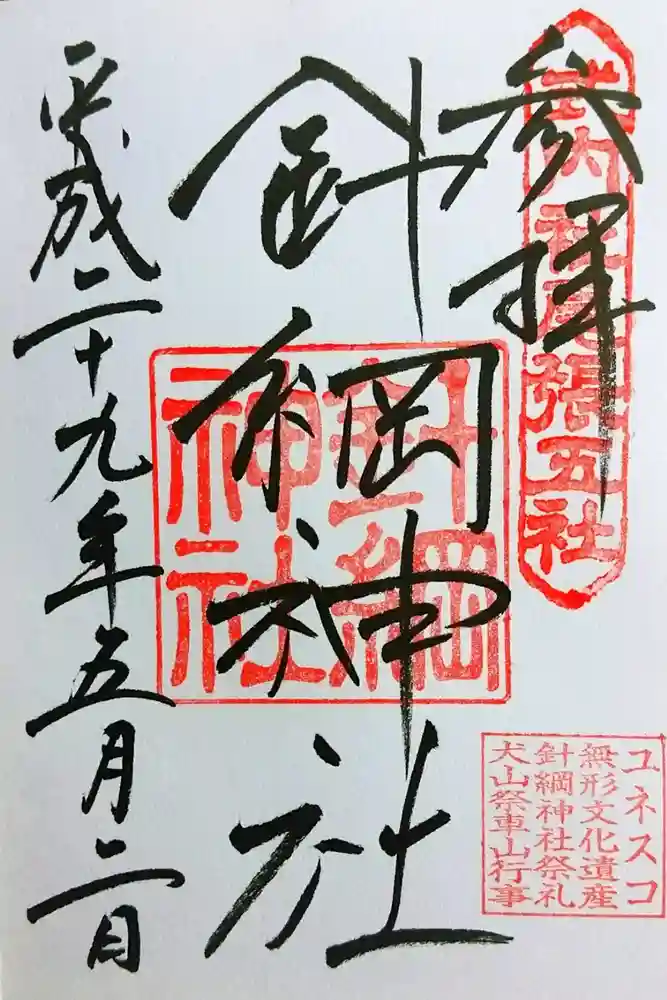 参拝
式内社尾張五社
針綱神社
針綱
神社
平成二十九年五月二日
ユネスコ
無形文化遺産
針綱神社祭礼
犬山祭車山行事